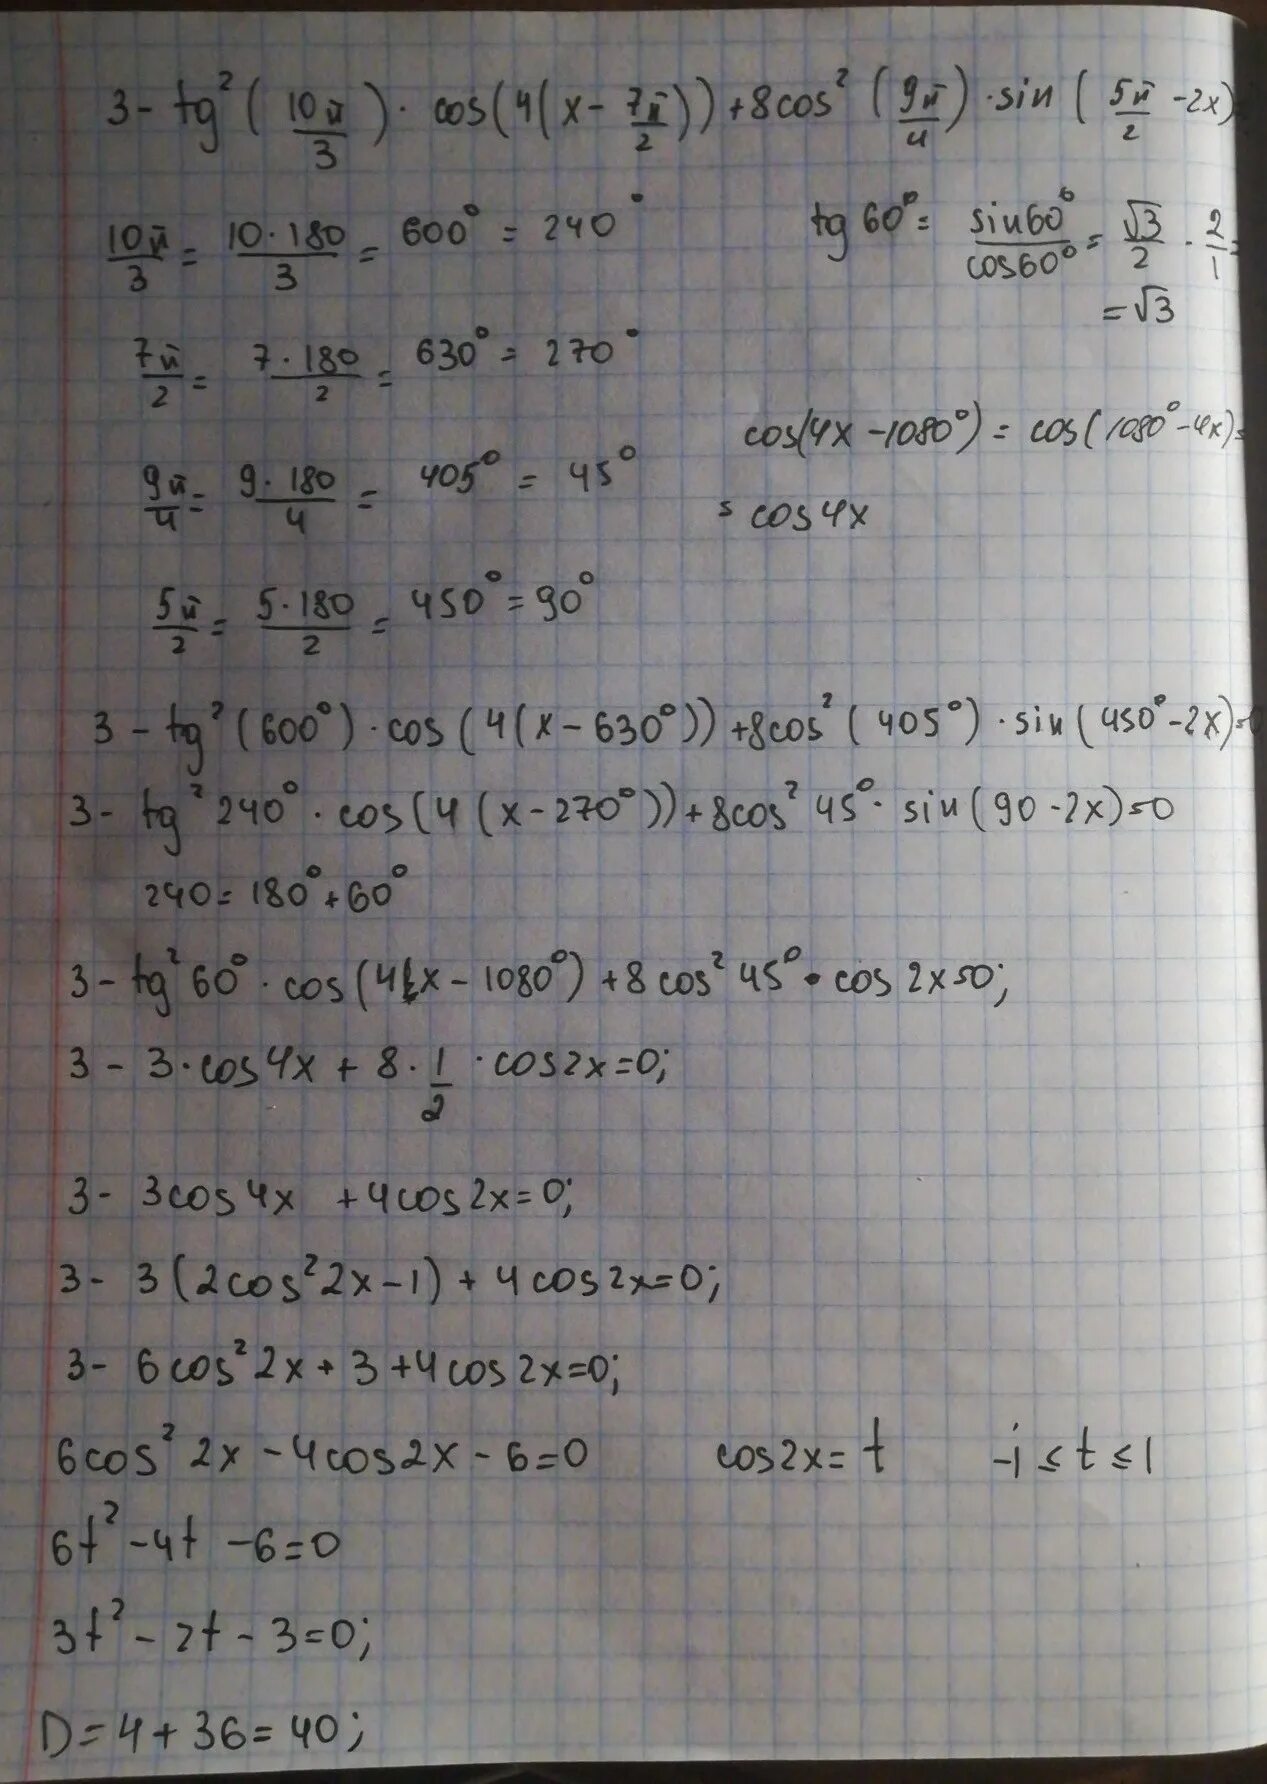 3 - tg²(10π/3) · cos(4(x - 7π/2)) + 8cos²(9π/4) · sin(5π/2 - 2x)
10π/3 = 10·180/3 = 600° = 240°
tg 60° = sin60°/cos60° = √3/2 · 2/1 =
= √3
7π/2 = 7·180/2 = 630° = 270°
cos(4x - 1080°) = cos(1080° - 4x) =
= cos4x
9π/4 = 9·180/4 = 405° = 45°
5π/2 = 5·180/2 = 450° = 90°
3 - tg²(600°) · cos(4(x - 630°)) + 8cos²(405°) · sin(450° - 2x) = 0
3 - tg²240° · cos(4(x - 270°)) + 8cos²45° · sin(90 - 2x) = 0
240 = 180° + 60°
3 - tg²60° · cos(4x - 1080°) + 8cos²45° · cos2x = 0;
3 - 3·cos4x + 8 · 1/2 · cos2x = 0;
3 - 3cos4x + 4cos2x = 0;
3 - 3(2cos²2x - 1) + 4cos2x = 0;
3 - 6cos²2x + 3 + 4cos2x = 0;
6cos²2x - 4cos2x - 6 = 0 cos2x = t -1 ≤ t ≤ 1
6t² - 4t - 6 = 0
3t² - 2t - 3 = 0;
D = 4 + 36 = 40;